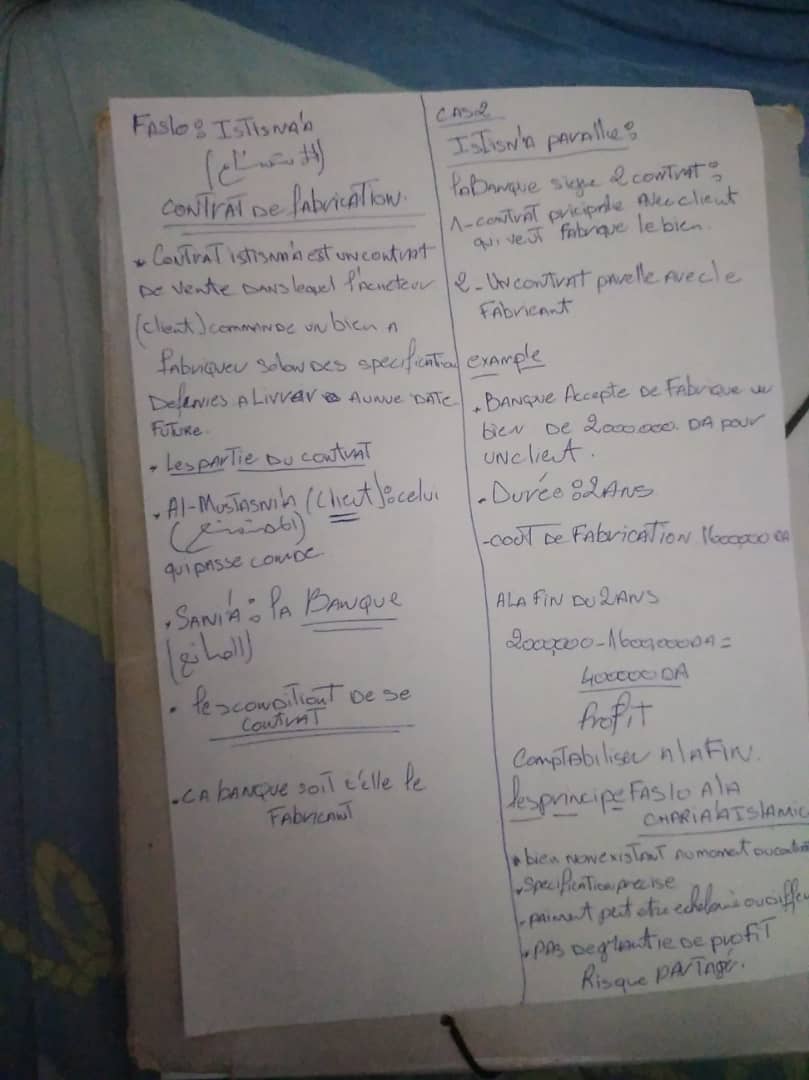 FASlo: ISTISNA'A
(الاستصناع)
CONTRAT DE fabRICATION.
• CONTRAT istisnaà est un contrat
DE vente DANS lequel l'acheteur
(client) commande un bien A
fabriquer selon DES specification
Definies A Livrer A unue DATE
FUTURE.
• Les partie DU contrat
• Al-Mustasnià (client): celui
(المستصنع)
qui passe comde
• SANI'A: la BANQUE
(الصانع)
• les conditiont DE se
CONTRAT
• CA BANQUE soit c'elle le
FABRICANT
CAS2
Istisn'a paralle:
la Banque signe 2 contrat:
1-contrat pricipale Avec client
qui veut fabrique le bien.
2-Un contrat parelle avec le
FABRICANT
example
• BANQUE Accepte DE FABRIQUE un
bien DE 2000.000. DA pour
un client.
• Durée: 2ANS
-coût DE FAbRICATION 1600,000 DA
A LA FIN DU 2ANS
2000,000-1600,000DA=
400000 DA
Profit
Comptabiliser A la FIN.
les principe FASlo A la
CHARIAA ISLAMIC
• bien non existant au moment du
• Specification precise
-paiment peut etre echelonné ou
• PAS De grantie De profit
Risque PARTAGÉ.